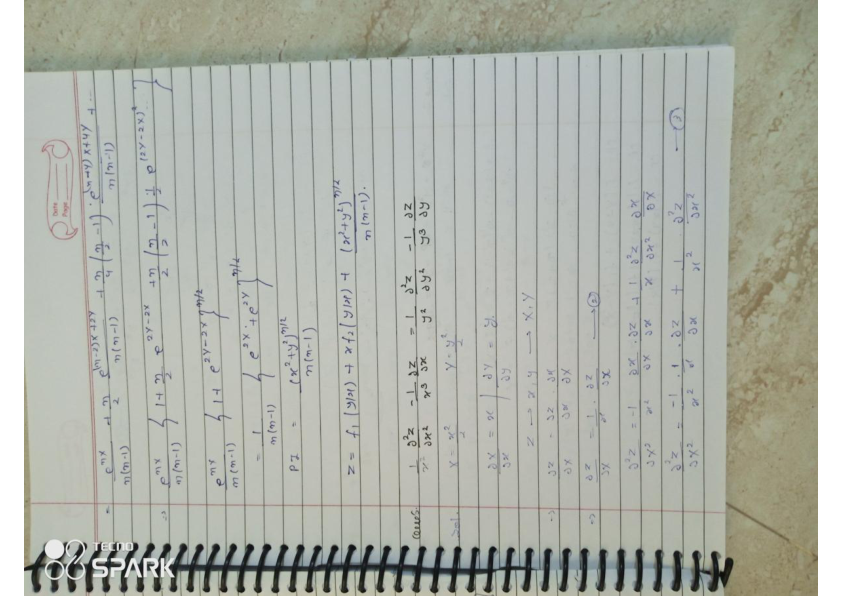 Date
Page
= e^{nX}/n(n-1) + n/2 e^{(n-2)X+2Y}/n(n-1) + n/4 (n/2 -1) · e^{(n-4)X+4Y}/n(n-1) + ...
⇒ e^{nX}/n(n-1) { 1 + n/2 e^{2Y-2X} + n/2 (n/2 -1) 1/2 e^{(2Y-2X)²} ... }
e^{nX}/n(n-1) { 1 + e^{2Y-2X} }^{n/2}
= 1/n(n-1) { e^{2X} + e^{2Y} }^{n/2}
PI = (x²+y²)^{n/2}/n(n-1)
z = f₁(y/x) + x f₂(y/x) + (x²+y²)^{n/2}/n(n-1).
1/x² ∂²z/∂x² - 1/x³ ∂z/∂x = 1/y² ∂²z/∂y² - 1/y³ ∂z/∂y
X = x²/2 Y = y²/2
∂X/∂x = x | ∂Y/∂y = y.
z → x, y → X, Y
⇒ ∂z/∂X = ∂z/∂x · ∂x/∂X
⇒ ∂z/∂X = 1/x · ∂z/∂x → ②
∂²z/∂X² = -1/x² ∂x/∂X · ∂z/∂x + 1/x · ∂²z/∂x² ∂x/∂X
∂²z/∂X² = -1/x² · 1/x · ∂z/∂x + 1/x² ∂²z/∂x² — ③
TECNO
SPARK